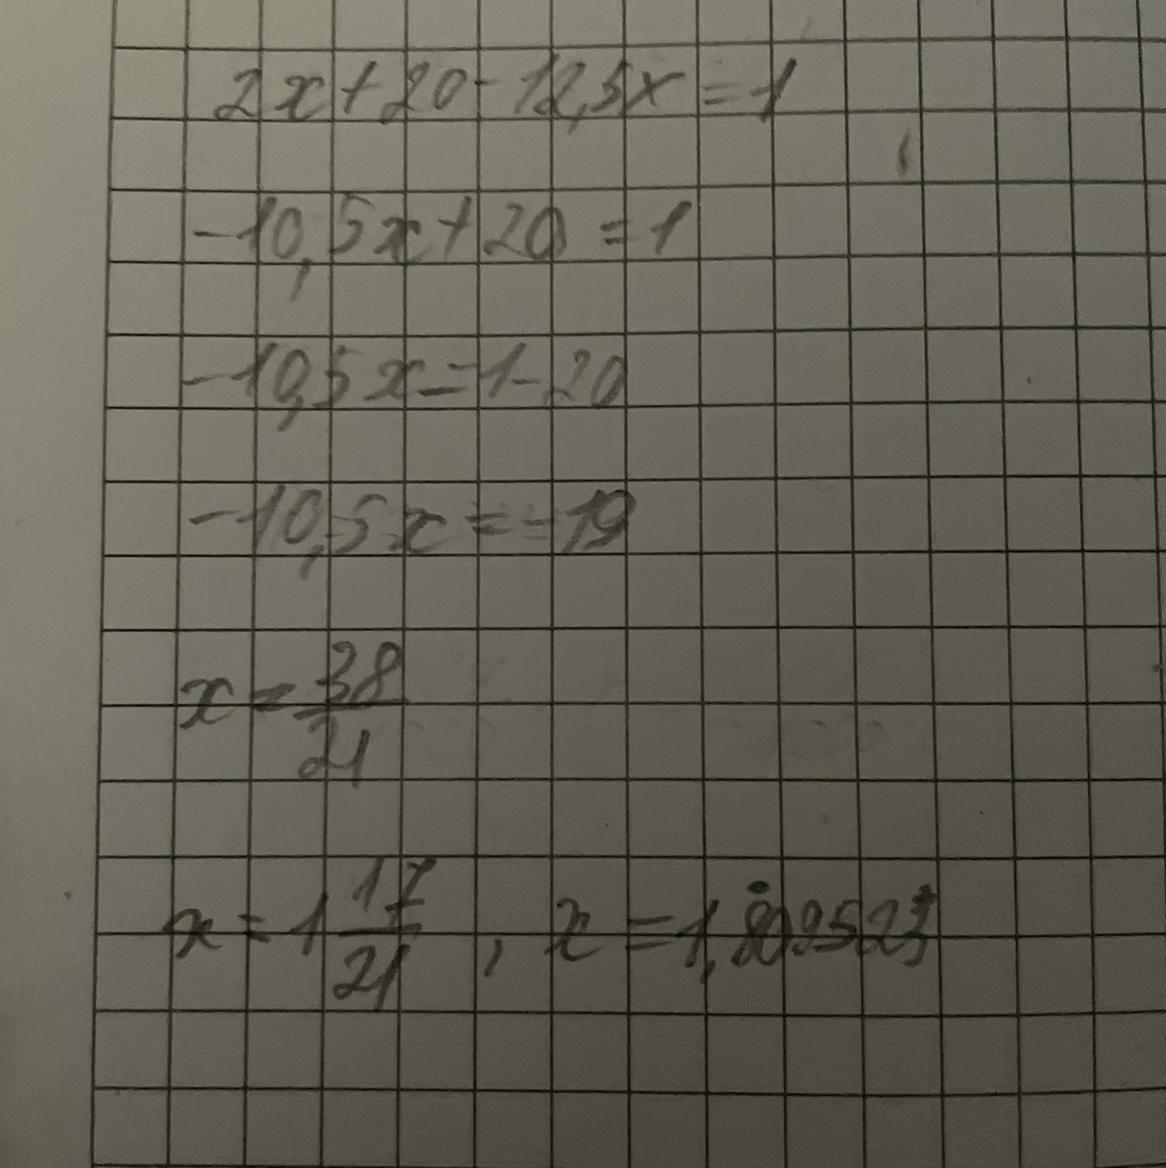 2x+20-12,5x=1
-10,5x+20=1
-10,5x=1-20
-10,5x=-19
x=38/21
x=1 17/21, x=1,809523